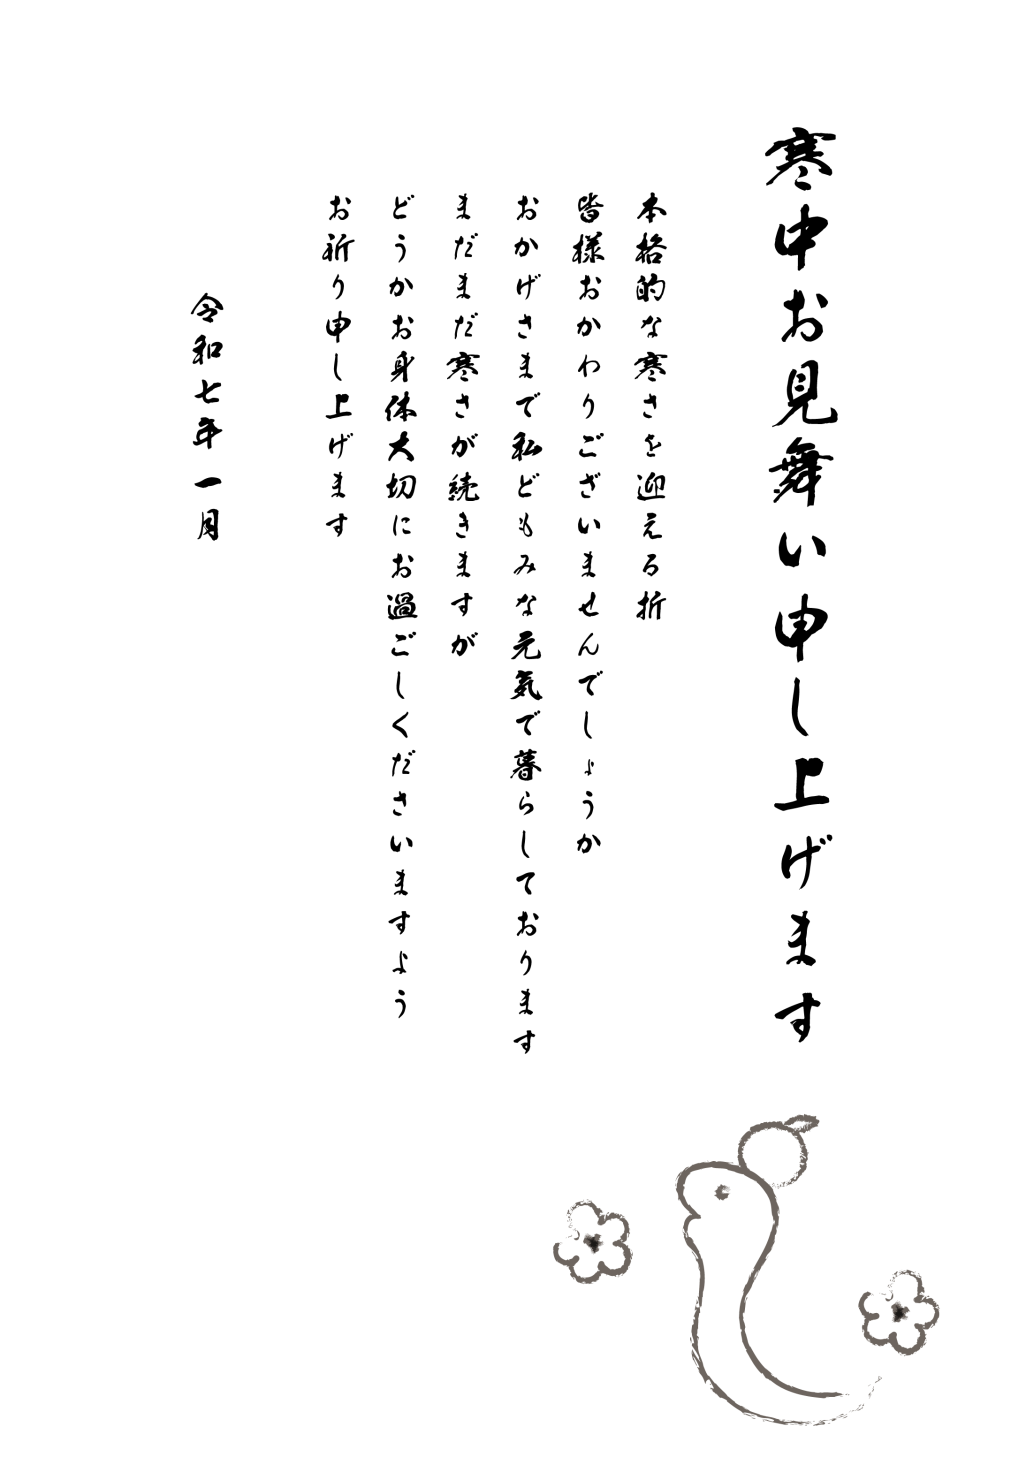 寒中お見舞い申し上げます
本格的な寒さを迎える折
皆様おかわりございませんでしょうか
おかげさまで私どもみな元気で暮らしております
まだまだ寒さが続きますが
どうかお身体大切にお過ごしくださいますよう
お祈り申し上げます
令和七年一月